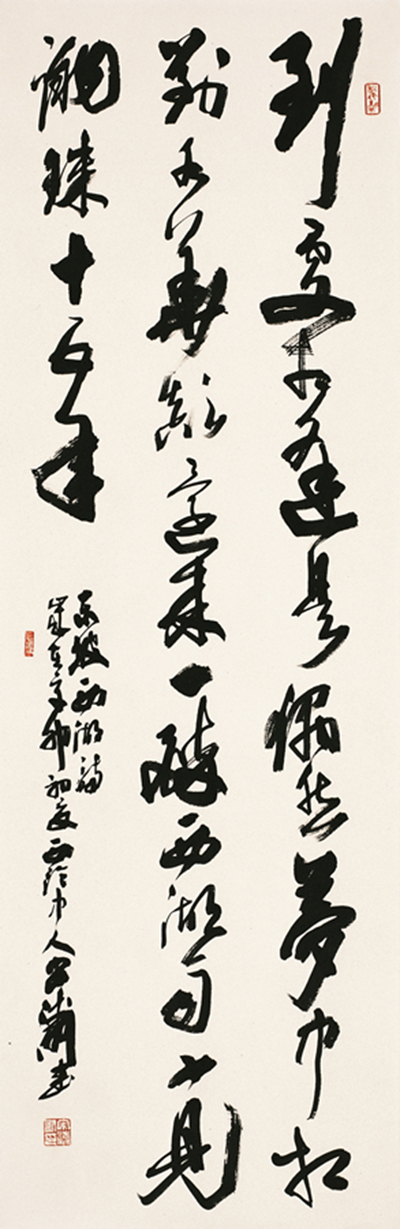 到處相逢是偶然夢中相
對各華顛還來一醉西湖雨不見
跳珠十五年
東坡西湖詩
歲在辛卯初夏西泠中人